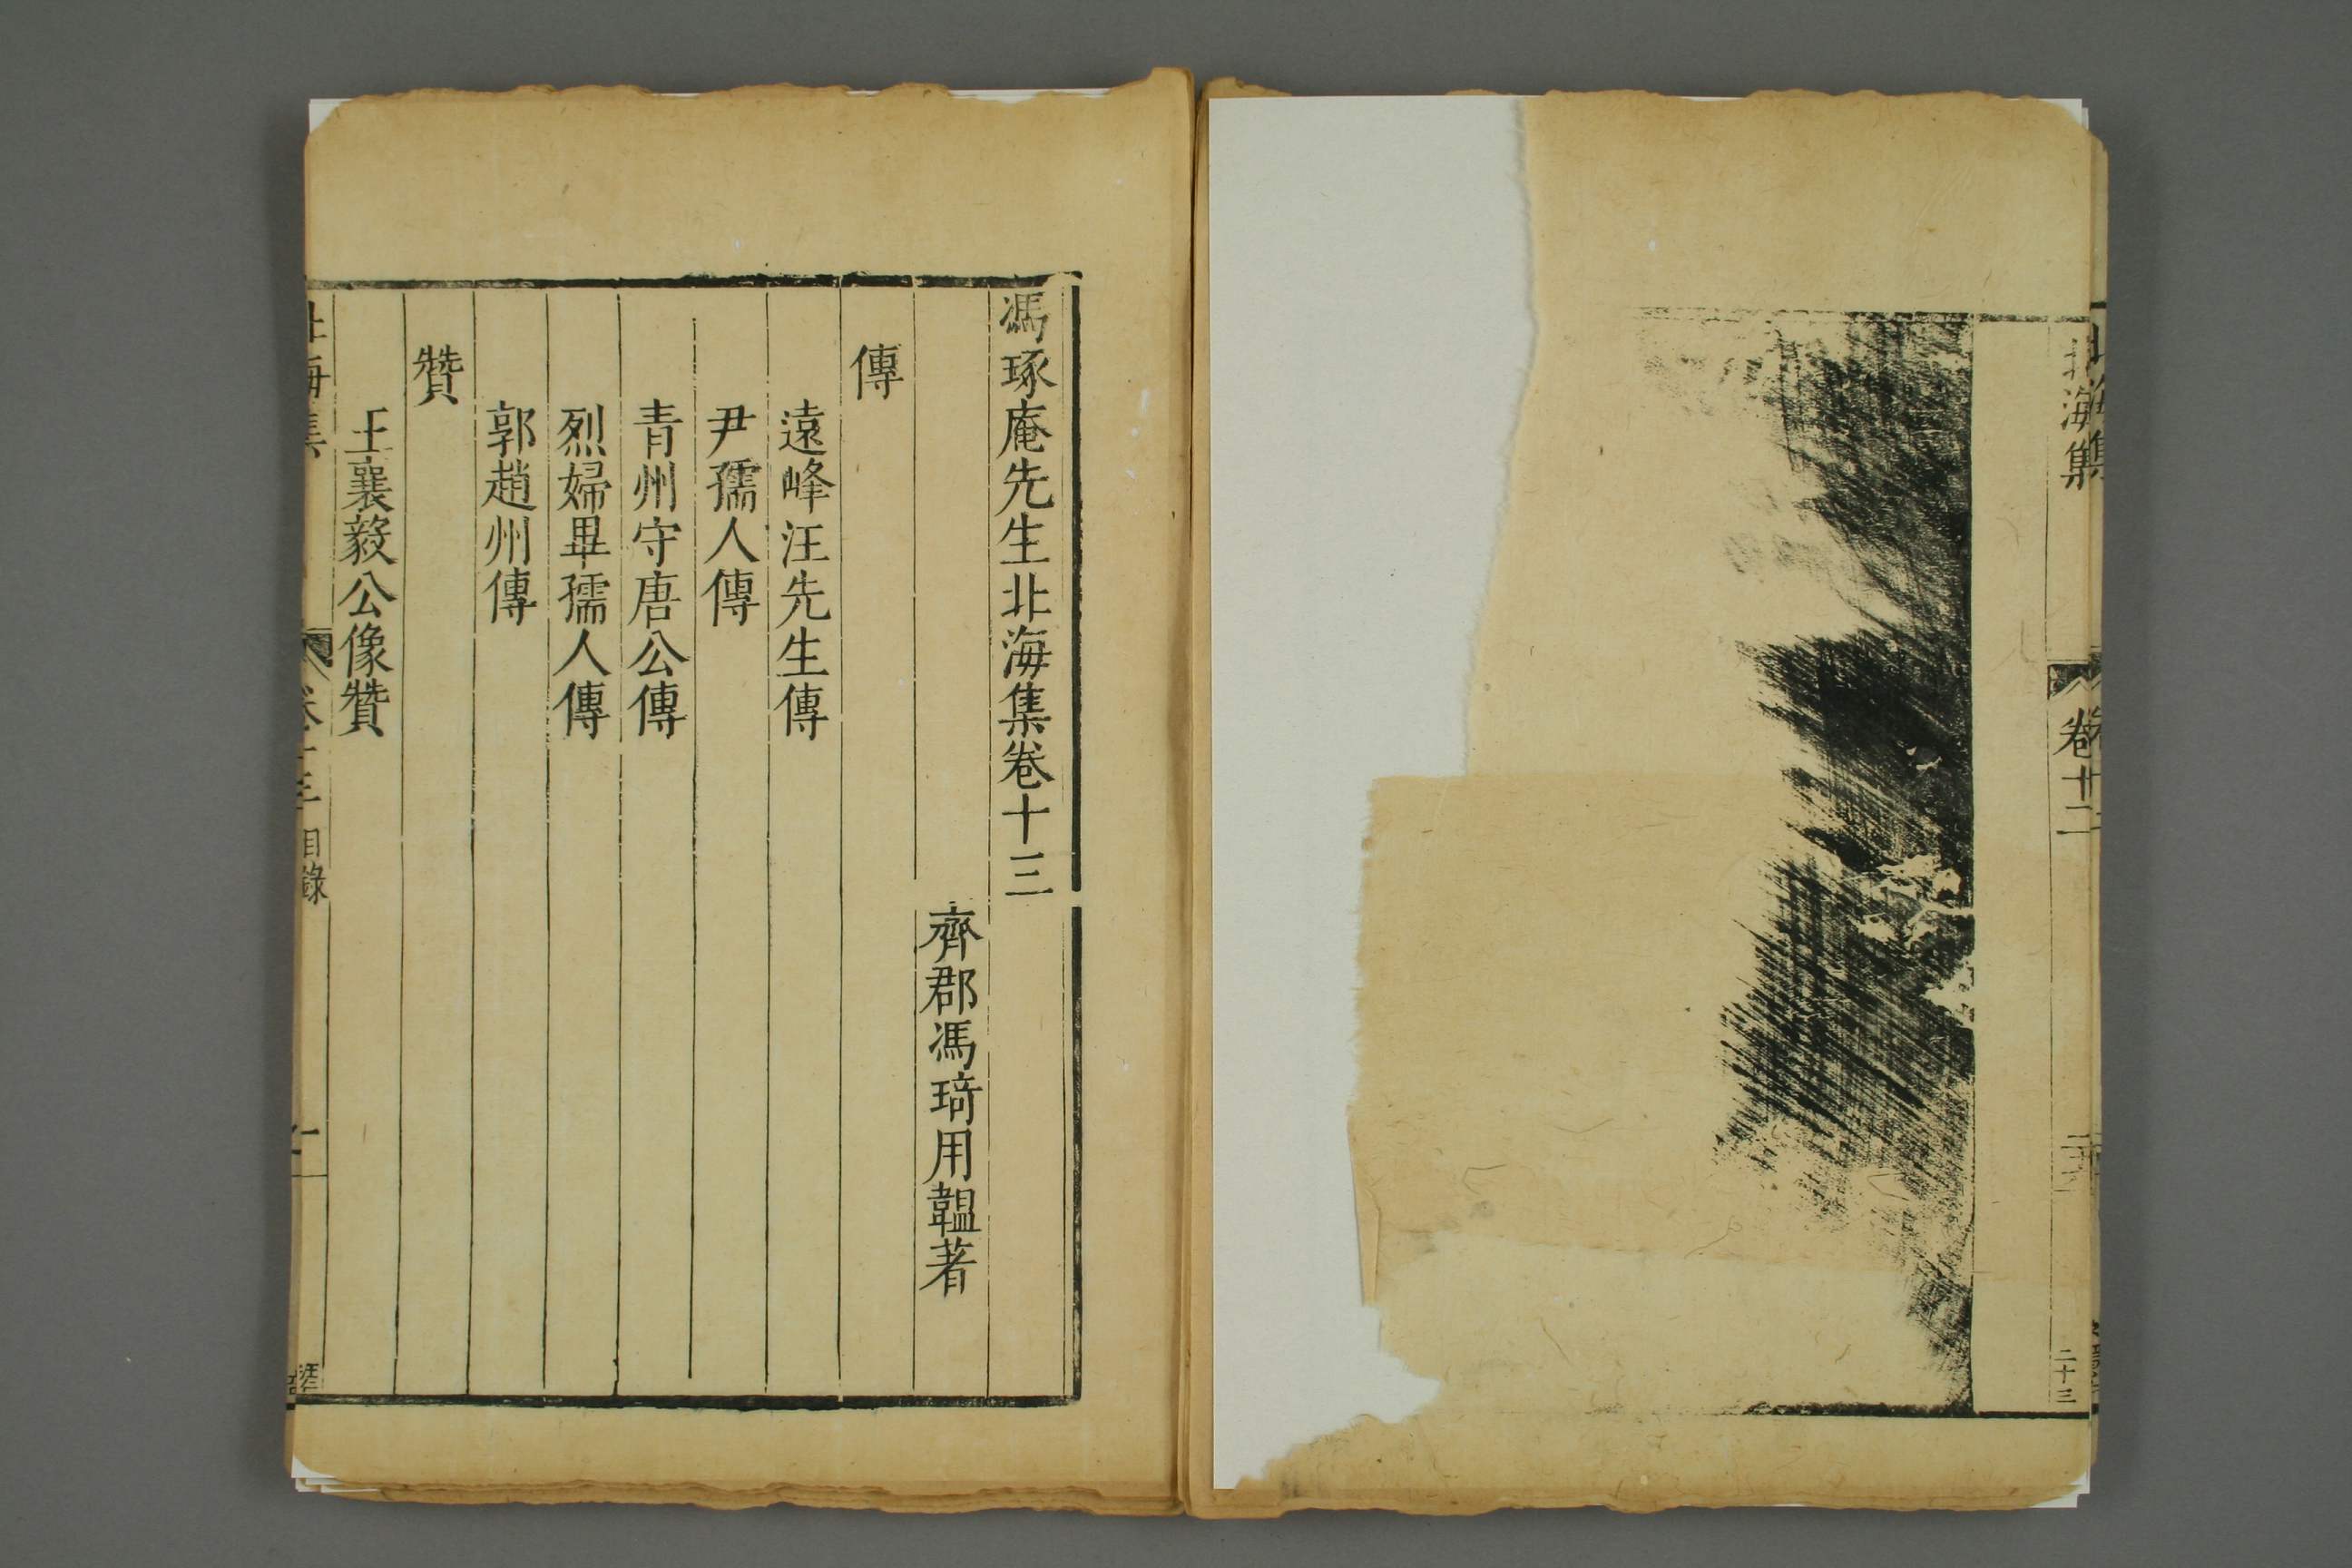 北海集
卷十二
二十三
馮琢庵先生北海集卷十三
齊郡馮琦用韞著
傳
遠峰汪先生傳
尹孺人傳
青州守唐公傳
烈婦畢孺人傳
郭趙州傳
贊
王襄毅公像贊
北海集
卷十三目錄
一